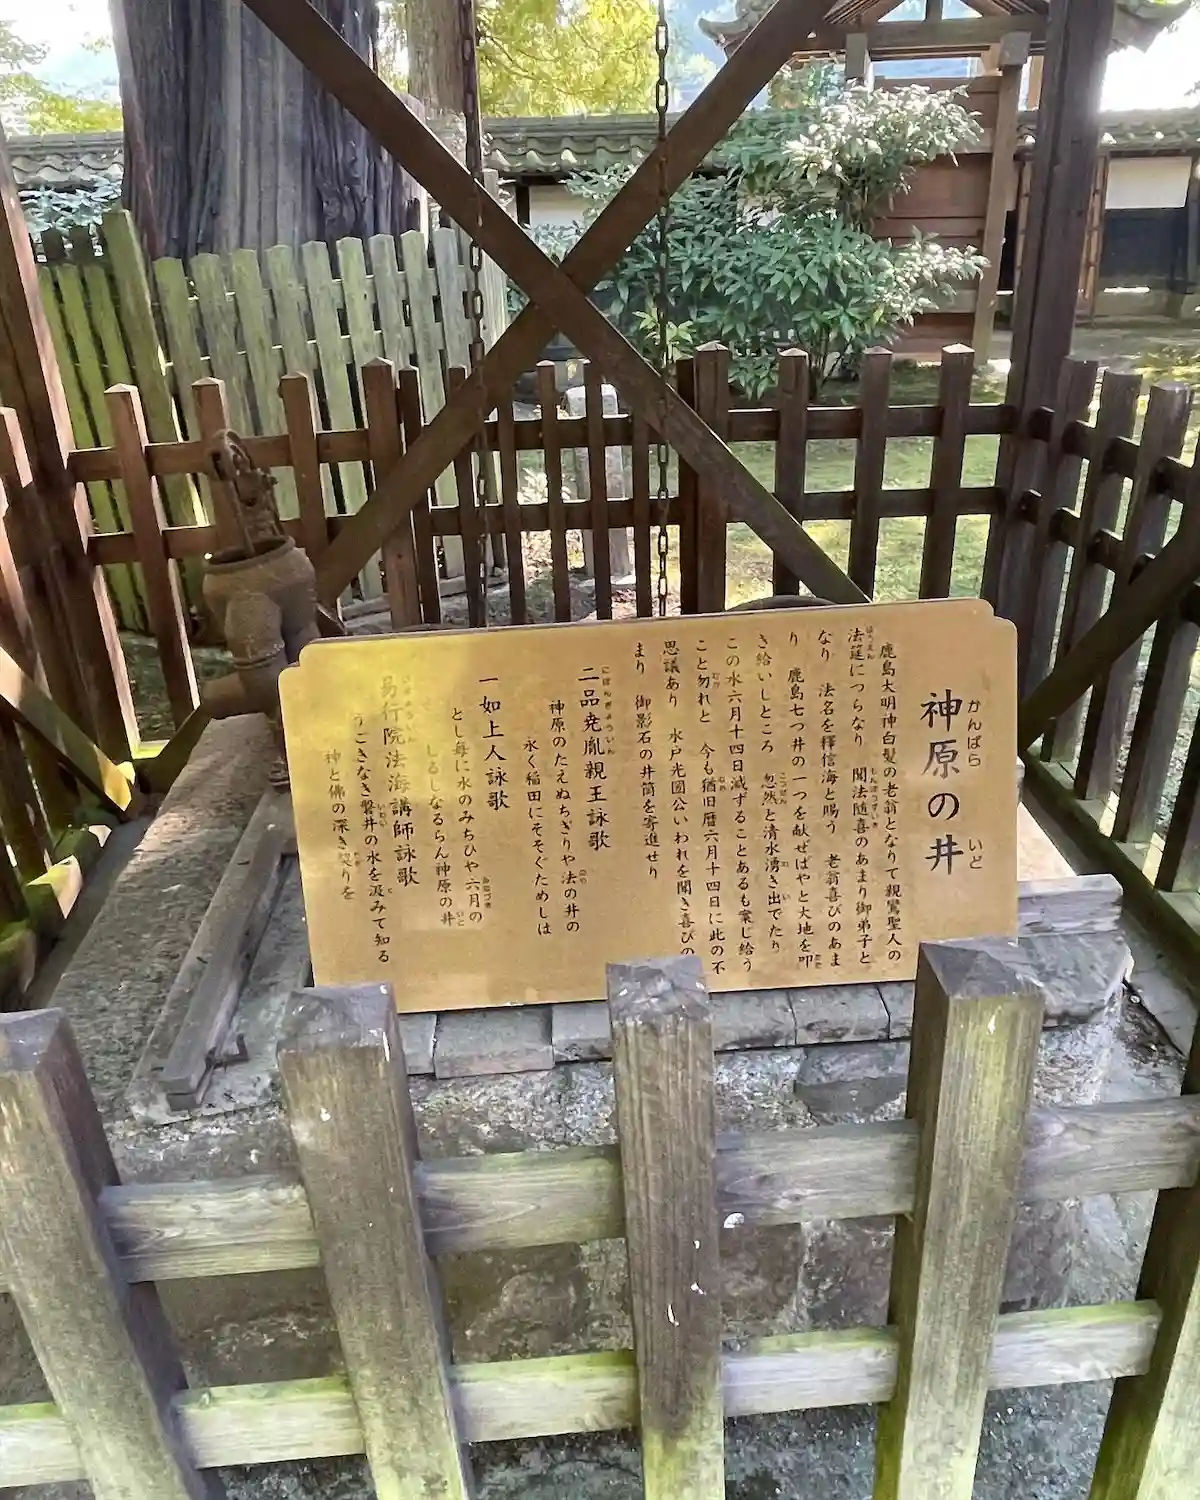 神原の井
鹿島大明神白髪の老翁となりて親鸞聖人の
法筵につらなり　聞法随喜のあまり御弟子と
なり　法名を釋信海と賜う　老翁喜びのあま
り　鹿島七つ井の一つを献ぜばやと大地を叩
き給いしところ　忽然と清水湧き出でたり
この水六月十四日減ずることあるも案じ給う
こと勿れと　今も猶旧暦六月十四日に此の不
思議あり　水戸光圀公いわれを聞き喜びの
まり　御影石の井筒を寄進せり
二品尭胤親王詠歌
神原のたえぬちぎりや法の井の
永く稲田にそそぐためしは
一如上人詠歌
とし毎に水のみちひや六月の
しるしなるらん神原の井
易行院法海講師詠歌
うごきなき磐井の水を汲みて知る
神と佛の深き契りを